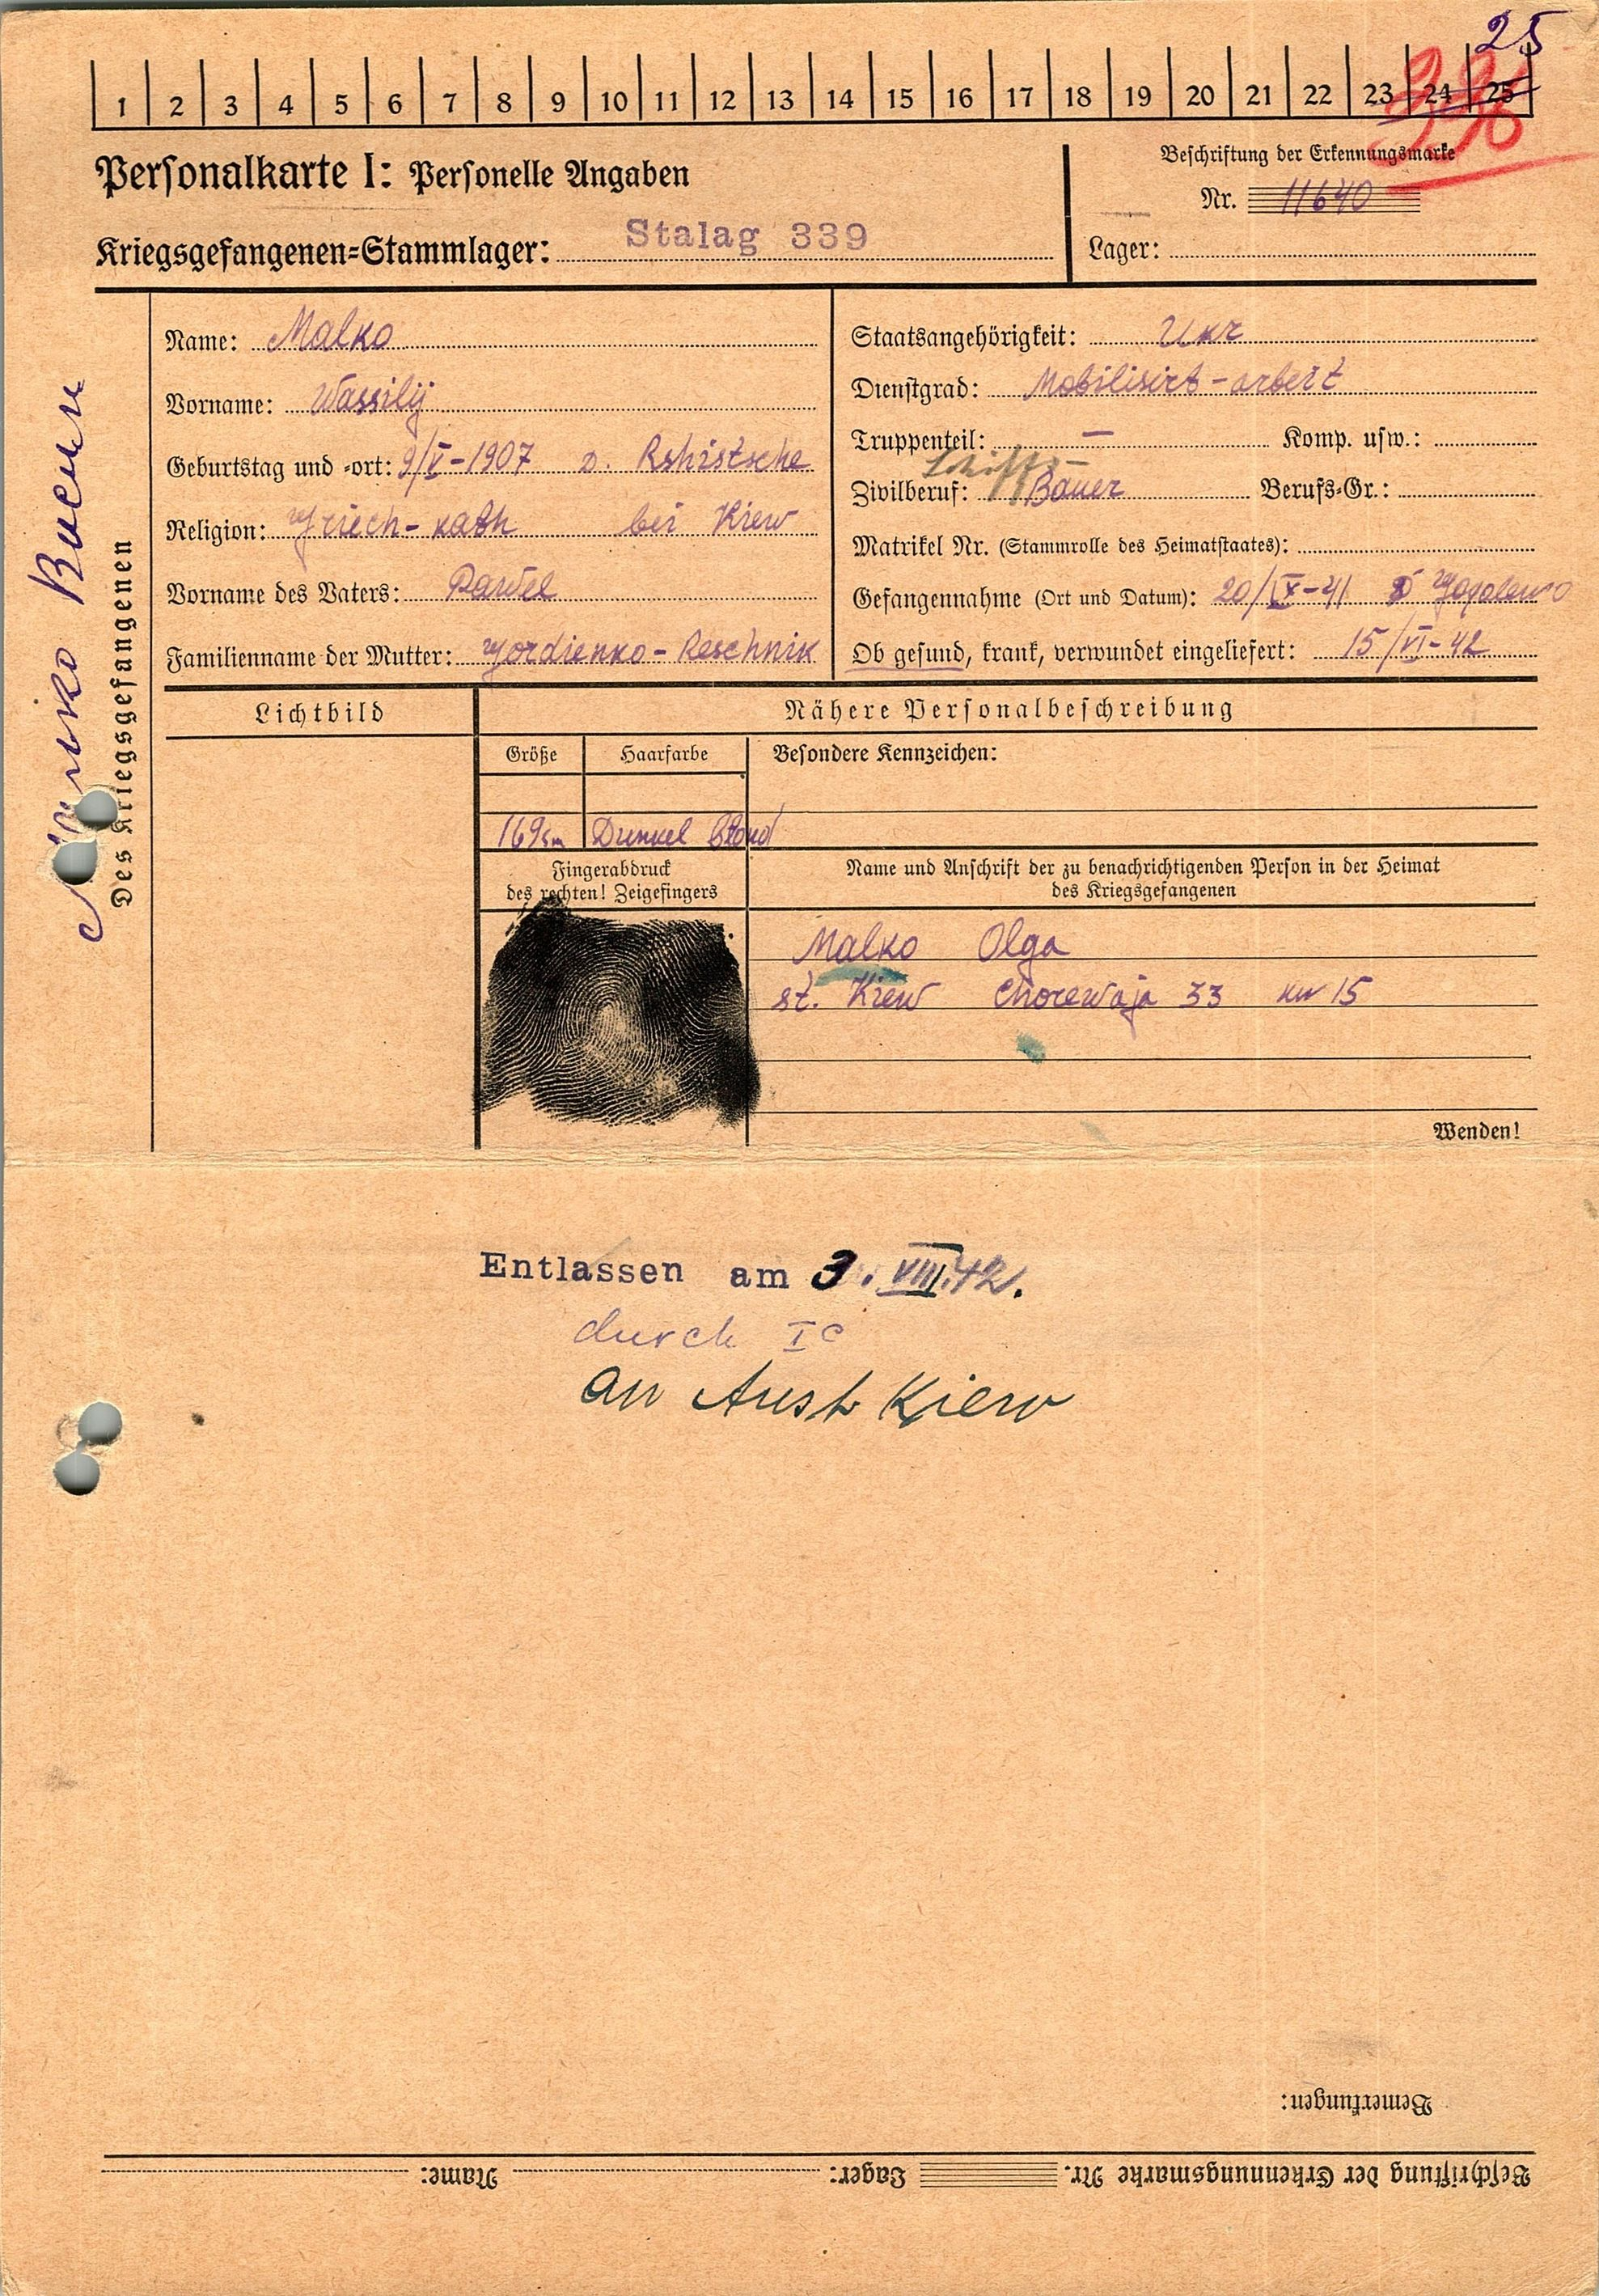 25
1 2 3 4 5 6 7 8 9 10 11 12 13 14 15 16 17 18 19 20 21 22 23 24 25
Personalkarte I: Personelle Angaben
Beschriftung der Erkennungsmarke
Nr. 11640
Kriegsgefangenen-Stammlager: Stalag 339
Lager:
Des Kriegsgefangenen
Name: Malko
Vorname: Wassilij
Geburtstag und -ort: 9/V-1907 D. Rshistsche
Religion: Griech-kath bei Kiew
Vorname des Vaters: Pawel
Familienname der Mutter: Gordienko-Reschnik
Staatsangehörigkeit: Ukr
Dienstgrad: Mobilisirt-arbeit
Truppenteil: — Komp. usw.:
Schiffs-
Zivilberuf: Bauer Berufs-Gr.:
Matrikel Nr. (Stammrolle des Heimatstaates):
Gefangennahme (Ort und Datum): 20/IX-41 D Gogolewo
Ob gesund, krank, verwundet eingeliefert: 15/VI-42
Lichtbild
Nähere Personalbeschreibung
Größe Haarfarbe Besondere Kennzeichen:
169cm Dunkel blond
Fingerabdruck
des rechten! Zeigefingers
Name und Anschrift der zu benachrichtigenden Person in der Heimat
des Kriegsgefangenen
Malko Olga
st. Kiew Chorewaja 33 kw 15
Wenden!
Entlassen am 3. VIII.42.
durch Ic
an Aust Kiew
Bemerkungen:
Beschriftung der Erkennungsmarke Nr. Lager: Name: